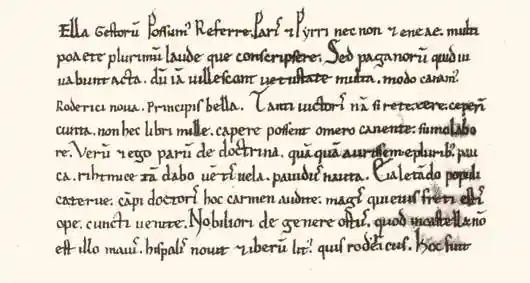 Ella Gestorũ Possum᷒ Referre. Paris ⁊ Pyrri nec non ⁊ eneae. multi
poaete plurimũ laude que conscripsere. Sed paganorũ quid iu
uabunt acta. dũ iã uillescant uetustate multa. modo canam᷒
Roderici noua. Principis bella. Tanti uictoris nã si retexere. ceperĩ
cunta. non hec libri mille. capere possent omero canente. sumo labo
re. Verũ ⁊ ego parũ de doctrina. quã quã aurissem e pluribꝰ. pau
ca. rihtmice tã. dabo uẽtis uela. pauidus nauta. Eia letãdo populi
caterue. cãpi doctoris hoc carmen audite. magis qui eius freti estis
ope. cuncti uenite. Nobiliori de genere ortus. quod in castella nõ
est illo maius. hispalis nouit ⁊ iberũ litus quis rodericus. Hoc fuit